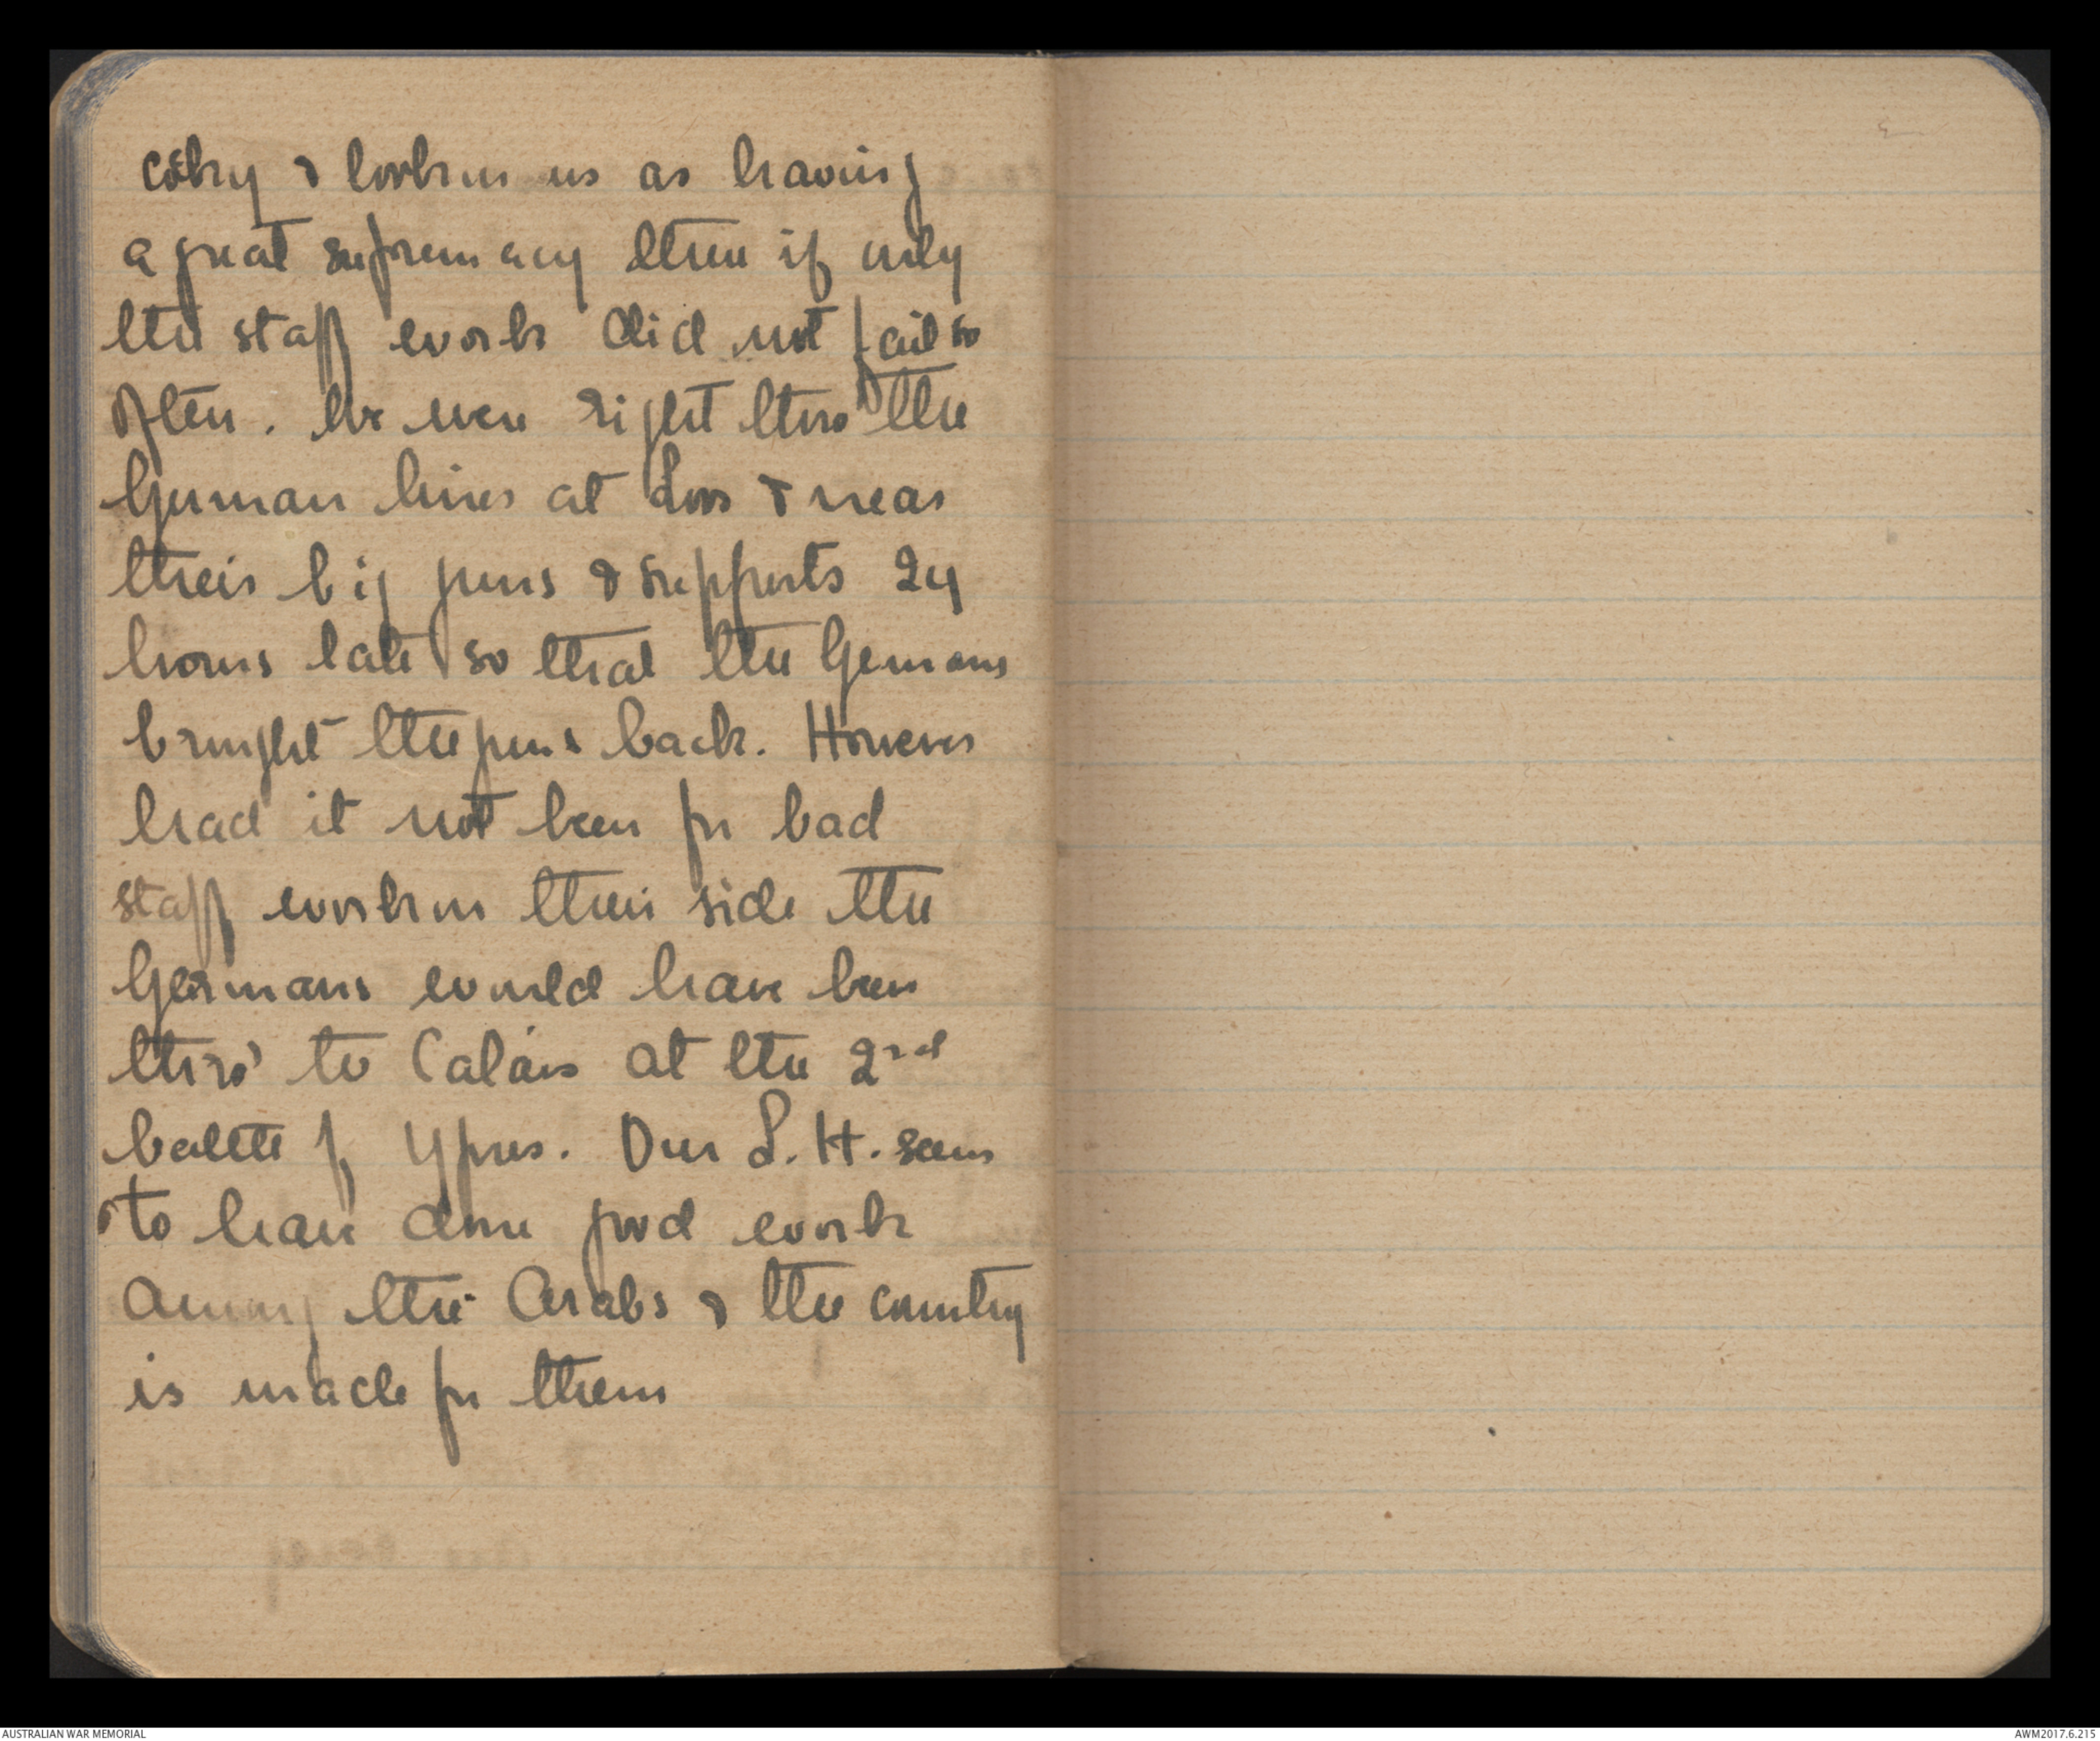 & look on us as having
a great supremacy there if only
the staff work did not fail so
often. We were right thro' the
German lines at Loos & near
their big guns & supports 24
hours late so that the Germans
brought the guns back. However
had it not been for bad
staff work on their side the
Germans would have been
thro' to Calais at the 2nd
battle of Ypres. Our L.H. seem
to have done good work
among the Arabs & the country
is made for them
AUSTRALIAN WAR MEMORIAL
AWM2017.6.215